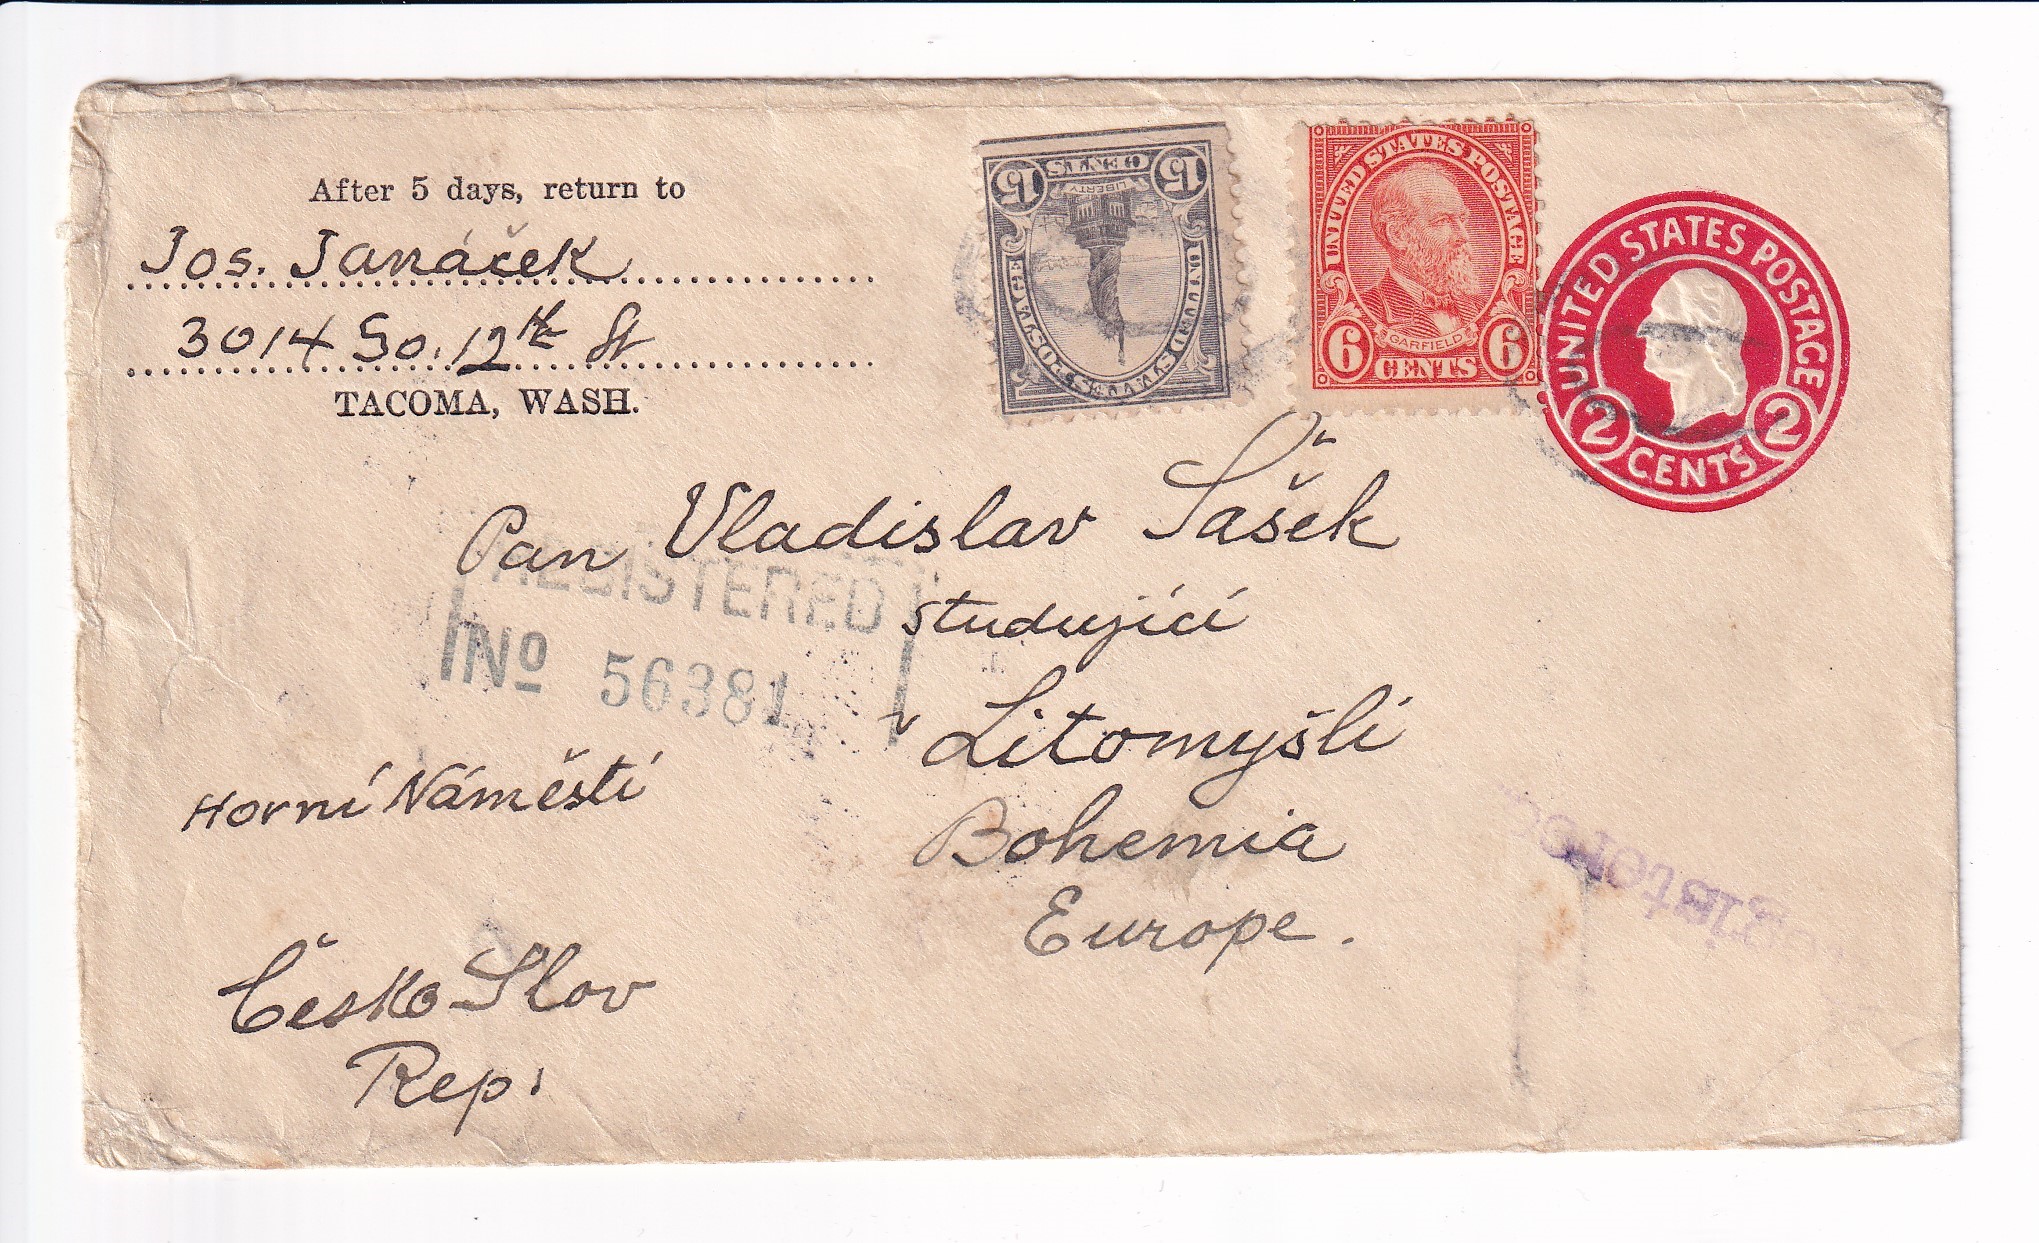 After 5 days, return to
Jos. Janáček
3014 So. 12th St
TACOMA, WASH.
15 CENTS 15
LIBERTY
UNITED STATES POSTAGE
UNITED STATES POSTAGE
GARFIELD
6 CENTS 6
UNITED STATES POSTAGE
2 CENTS 2
Pan Vladislav Šašek
studující
REGISTERED
No 56381
v Litomyšli
Horní Náměstí
Bohemia
Europe.
Česko Slov
Rep.